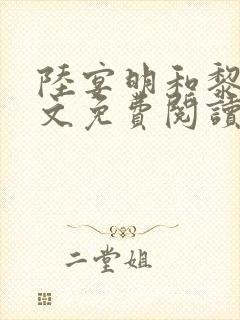 陸宴明和黎
文免費閱讀
二堂姐